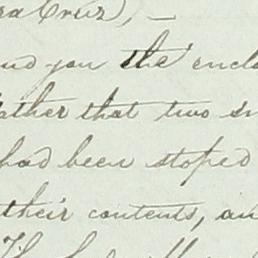 ra Cruz), —
and you the encl
ather that two s
had been stoped
their contents, an